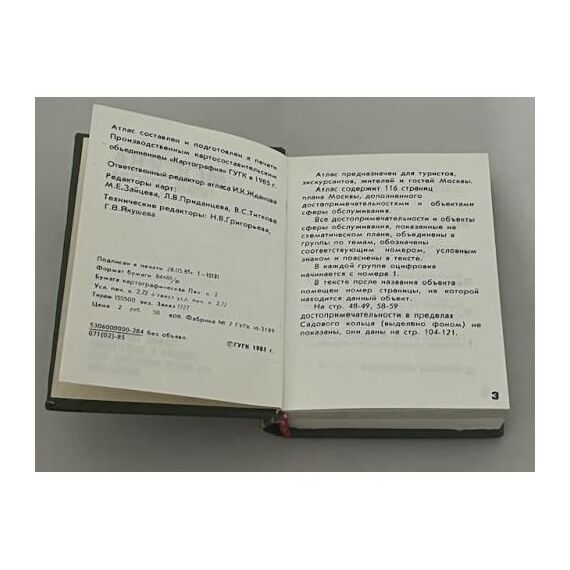 Атлас составлен и подготовлен к печати
Производственным картосоставительским
объединением «Картография» ГУГК в 1985 г.
Ответственный редактор атласа И.К.Жданова
Редакторы карт:
М.Е.Зайцева, Л.В.Приданцева, В.С.Титкова
Технические редакторы: Н.В.Григорьева,
Г.В.Якушева
Подписан к печати 28.05.85г.
Формат бумаги 84×65/м
Бумага картографическая Печ. л. 2
Усл. печ. л. 2,72 2,72
Тираж 155500 экз. Заказ 1727
Цена 2 руб. 50 коп. Фабрика № 2 ГУГК И-3189
5306000000-284 без объявл.
071(02)-85
©ГУГК 1985 г.
Атлас предназначен для туристов,
экскурсантов, жителей и гостей Москвы.
Атлас содержит 116 страниц
плана Москвы, дополненного
достопримечательностями и объектами
сферы обслуживания.
Все достопримечательности и объекты
сферы обслуживания, показанные на
схематическом плане, объединены в
группы по темам, обозначены
соответствующим номером, условным
знаком и пояснены в тексте.
В каждой группе оцифровка
начинается с номера 1.
В тексте после названия объекта
помещен номер страницы, на которой
находится данный объект.
На стр. 48-49, 58-59
достопримечательности в пределах
Садового кольца (выделено фоном) не
показаны, они даны на стр. 104-121.
3